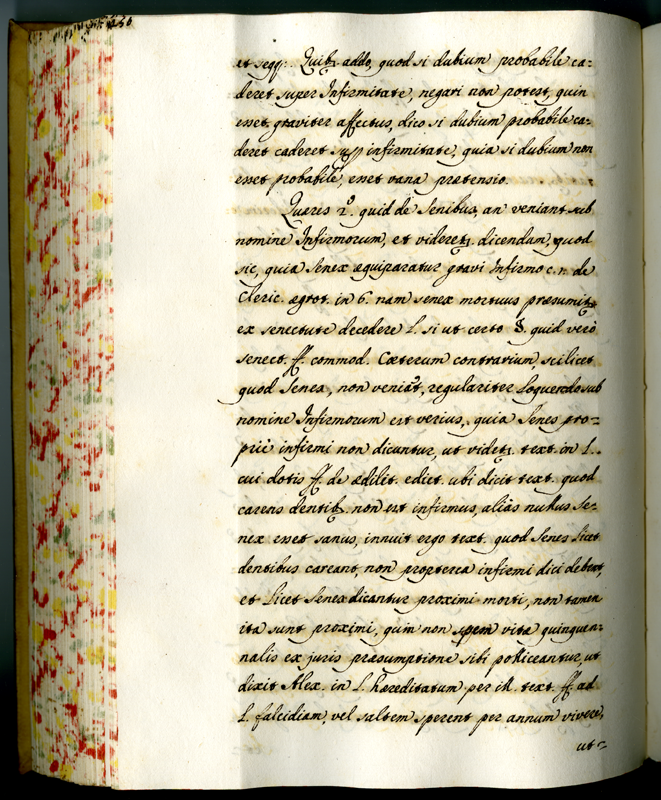 et seqq: Quib9 addo, quod si dubium probabile ca=
deret super Infirmitate, negari non potest, quin
esset graviter affectus, dico si dubium probabile ca=
deret caderet sup infirmitate, quia si dubium non
esset probabile, esset vana praetensio.
Quaeris 2.º quid de Senibus, an veniant sub
nomine Infirmorum, et videret dicendum, quod
sic, quia Senex aequiparatur gravi Infirmo c. n. de
Cleric. aegrot. in 6. nam senex mortuus praesumit
ex senectute decedere l. si ut certo §. quid vero
senect. ff. commod. Caeterum contrarium, scilicet
quod Senex, non veniat, regulariter loquendo sub
nomine Infirmorum est verius, quia Senes pro=
priè infirmi non dicuntur, ut videt. text. in l.
cui dotis ff. de aedilit. edict. ubi dicit text. quod
carens dentib. non est infirmus, aliàs nullus Se=
nex esset sanus, innuit ergo text. quod Senes licet
dentibus careant, non propterea infirmi dici debent,
et licet Senex dicantur proximi morti, non tamen
ita sunt proximi, quin non spem vita quinquen=
nalis ex juris praesumptione sibi polliceantur, ut
dixit Alex. in l. haereditatum per ill. text. ff. ad
l. falcidiam, vel saltem sperent per annum vivere,
ut=